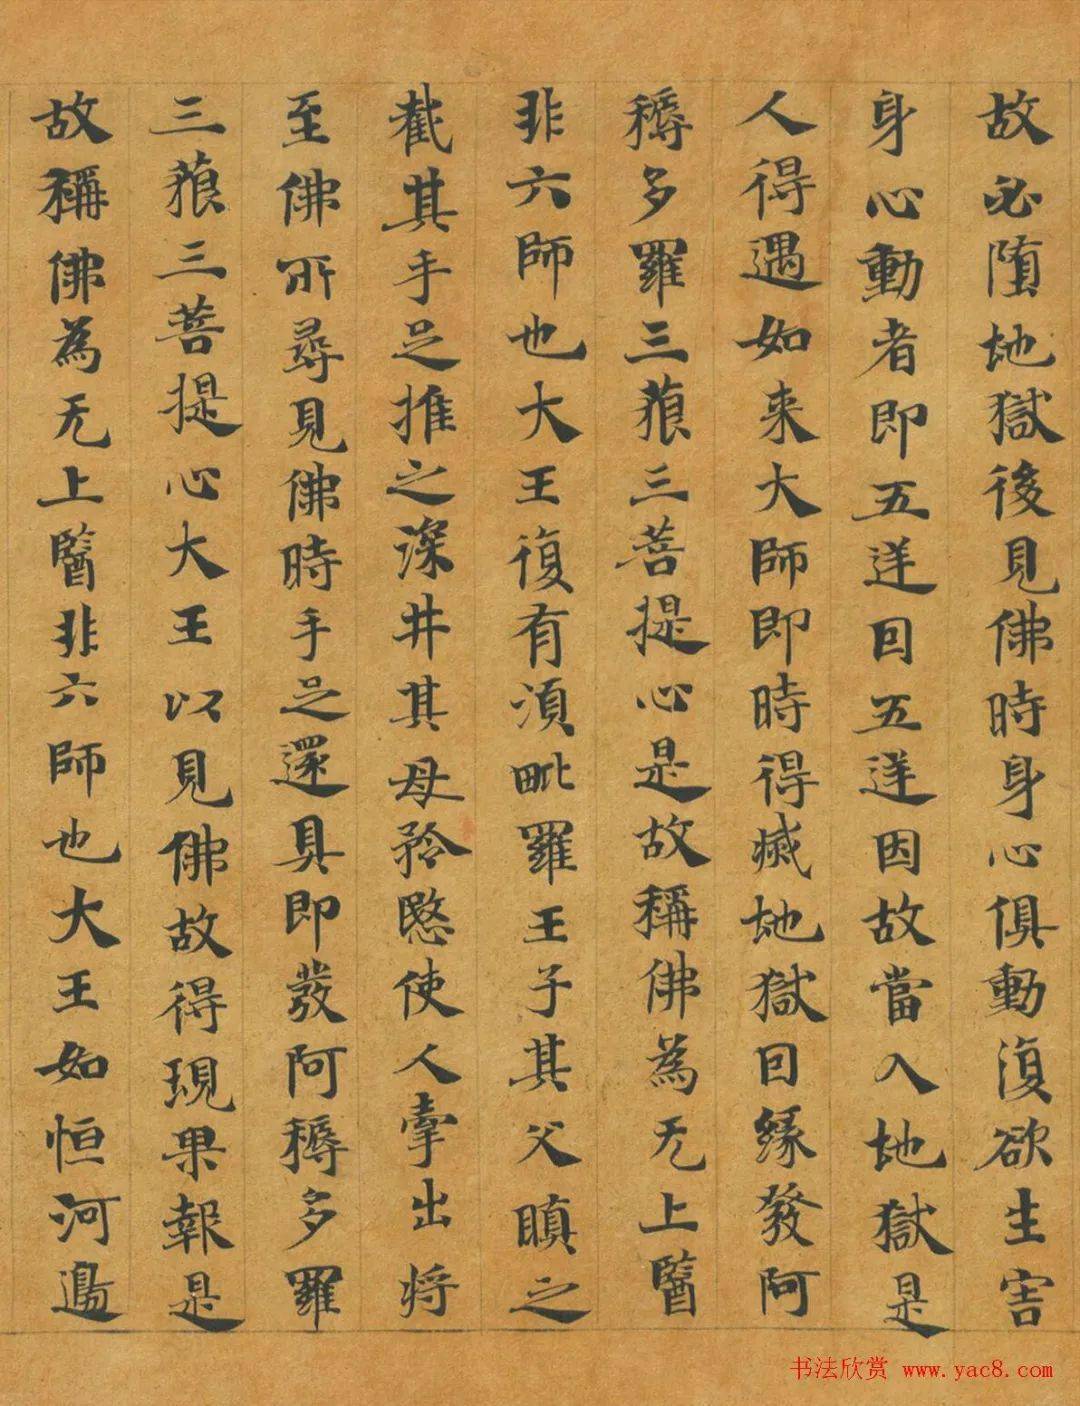 故必墮地獄後見佛時身心俱動復欲生害
身心動者即五逆因五逆因故當入地獄是
人得遇如来大師即時得滅地獄因緣發阿
耨多羅三藐三菩提心是故稱佛為无上醫
非六師也大王復有湏毗羅王子其父瞋之
截其手足推之深井其母矜愍使人牽出將
至佛所尋見佛時手足還具即發阿耨多羅
三藐三菩提心大王以見佛故得現果報是
故稱佛為无上醫非六師也大王如恒河邊
书法欣赏 www.yac8.com